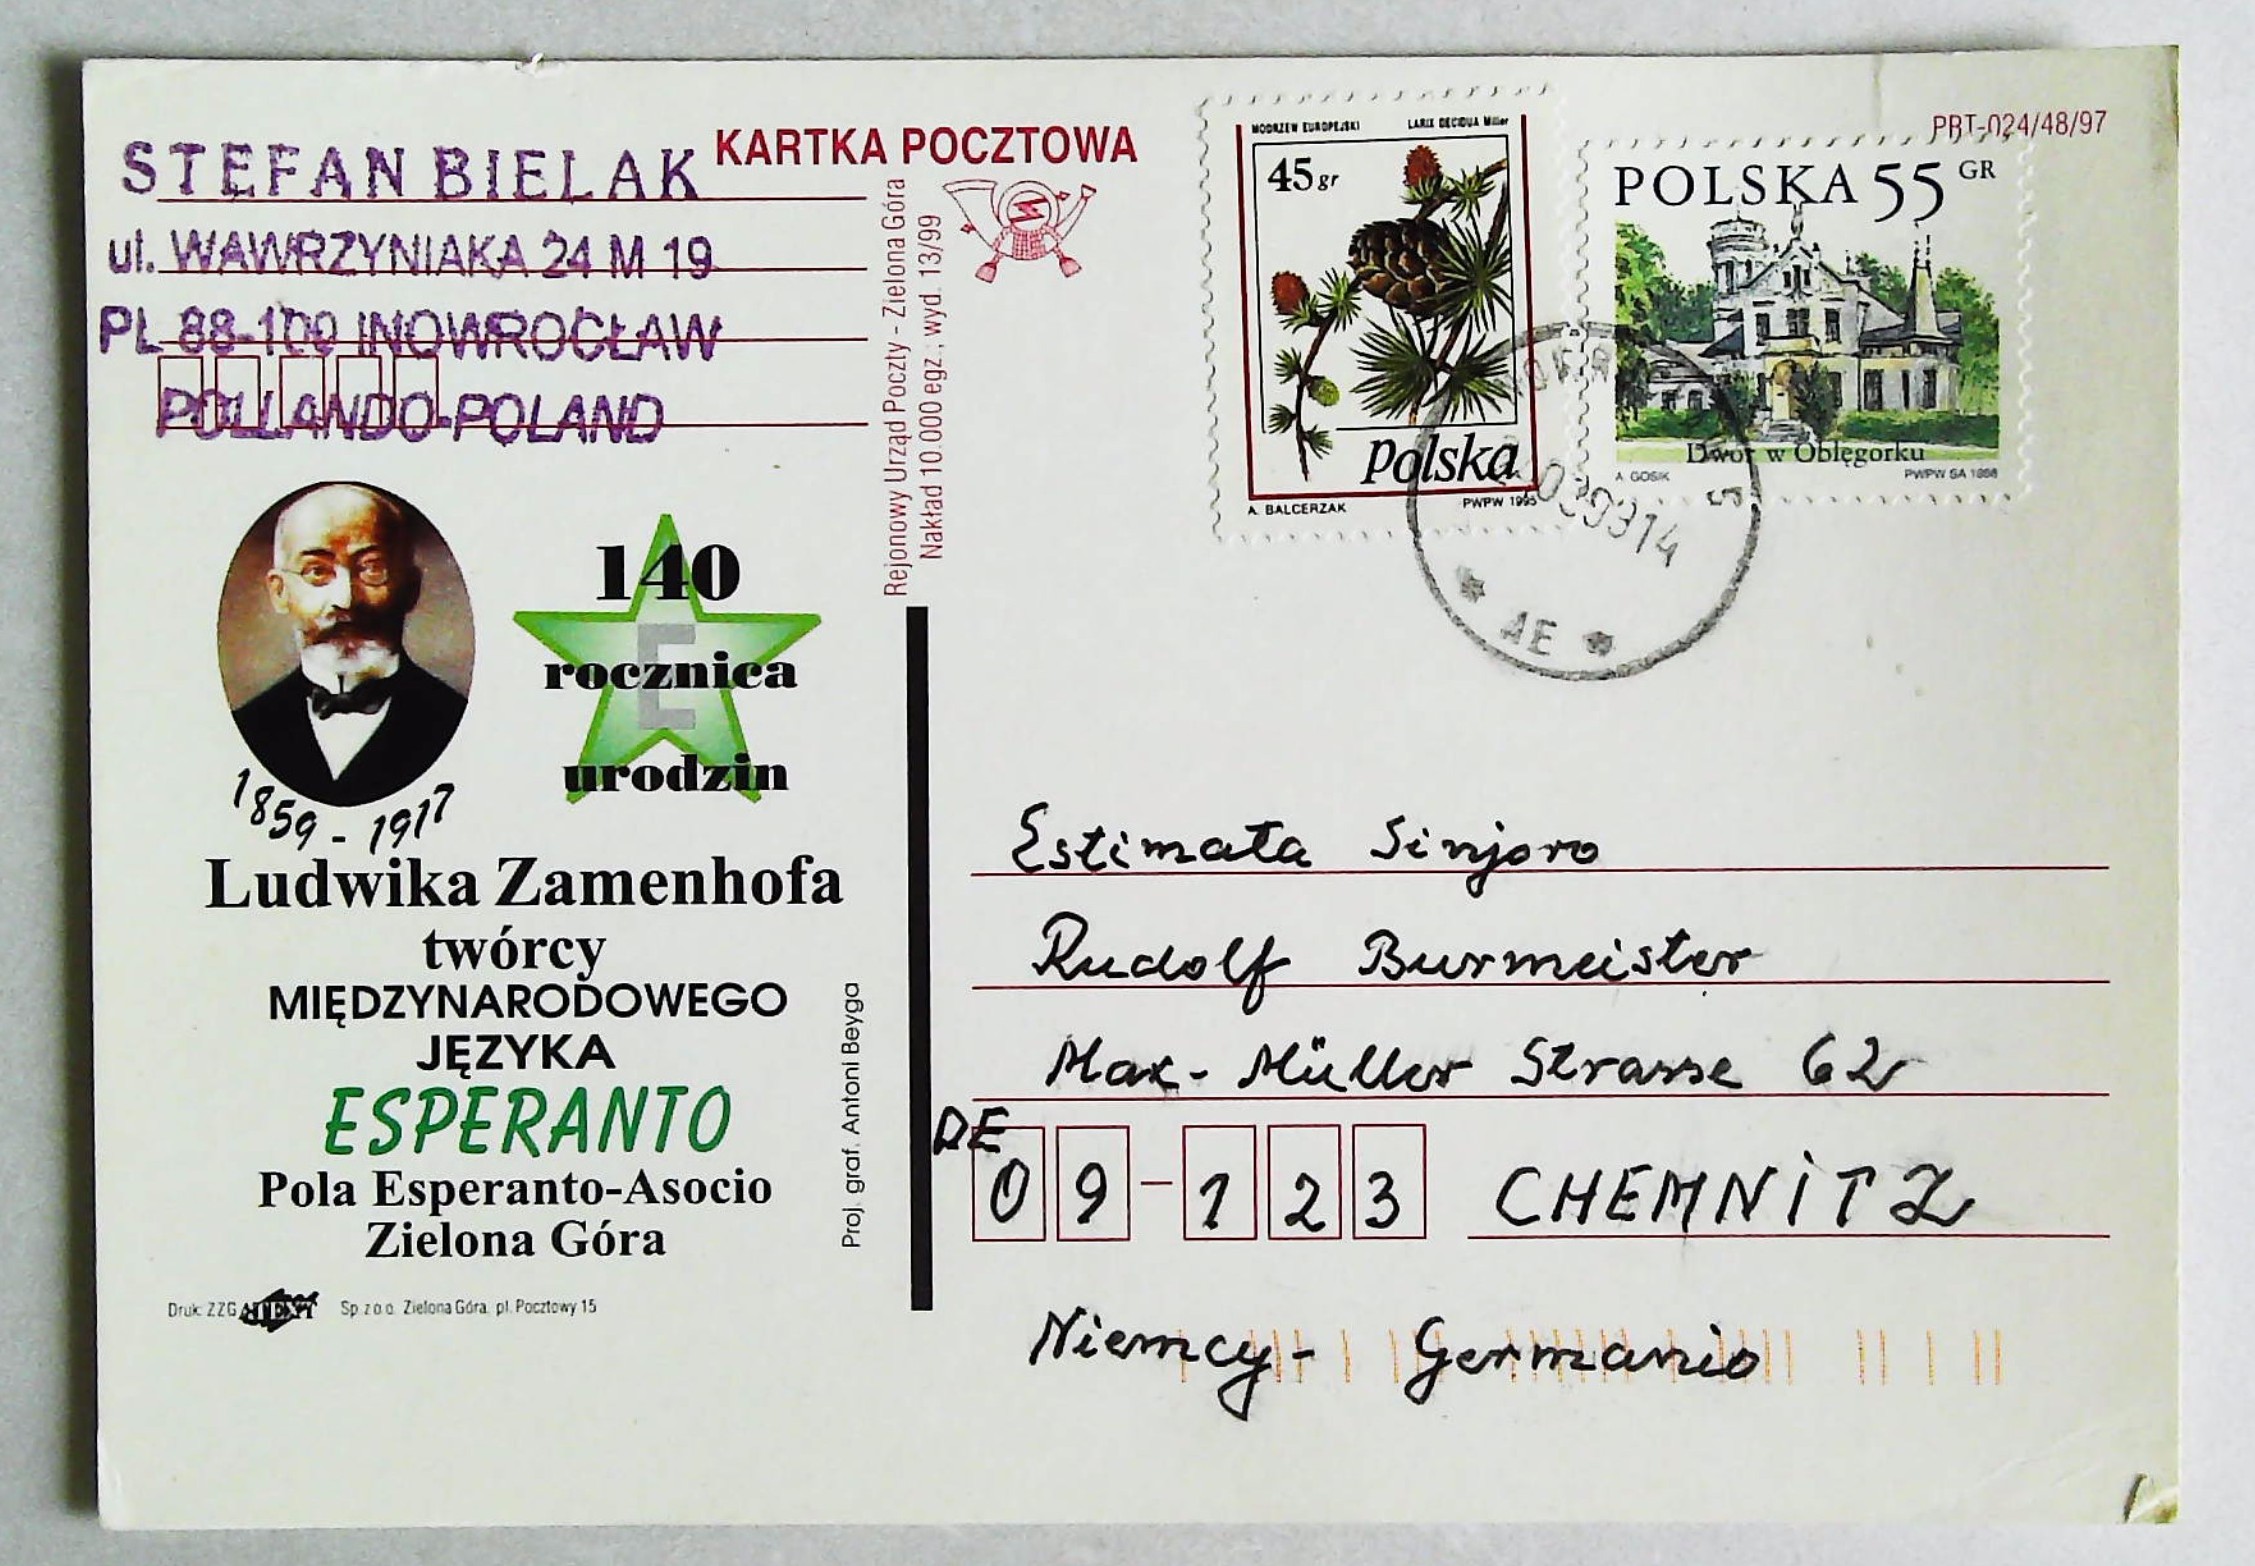 STEFAN BIELAK
ul. WAWRZYNIAKA 24 M 19
PL 88-100 INOWROCŁAW
POLLANDO-POLAND
KARTKA POCZTOWA
Rejonowy Urząd Poczty - Zielona Góra
Nakład 10.000 egz., wyd. 13/99
MODRZEW EUROPEJSKI LARIX DECIDUA Miller
45 gr
Polska
A. BALCERZAK PWPW 1995
PBT-024/48/97
POLSKA 55 GR
Dwór w Oblęgorku
A GOSIK PWPW SA 1998
5
AE
140
E
rocznica
urodzin
1859 - 1917
Ludwika Zamenhofa
twórcy
MIĘDZYNARODOWEGO
JĘZYKA
ESPERANTO
Pola Esperanto-Asocio
Zielona Góra
Proj. graf. Antoni Beyga
Druk: ZZG Sp. z o.o. Zielona Góra, pl. Pocztowy 15
Estimata Sinjoro
Rudolf Burmeister
Max-Müller Strasse 62
DE 09-123 CHEMNITZ
Niemcy - Germanio